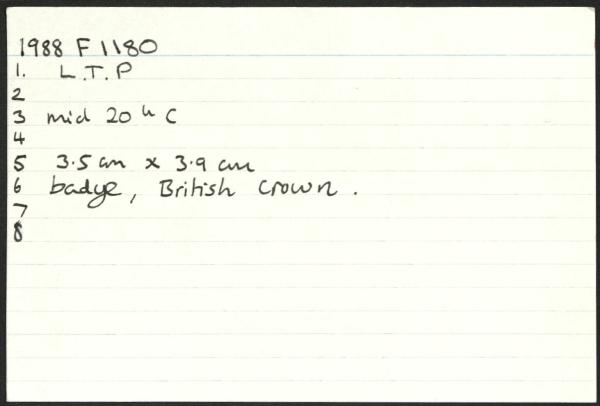 1988 F 1180
1. L.T.P
2
3 mid 20th C
4
5 3.5 cm x 3.9 cm
6 badge, British Crown.
7
8